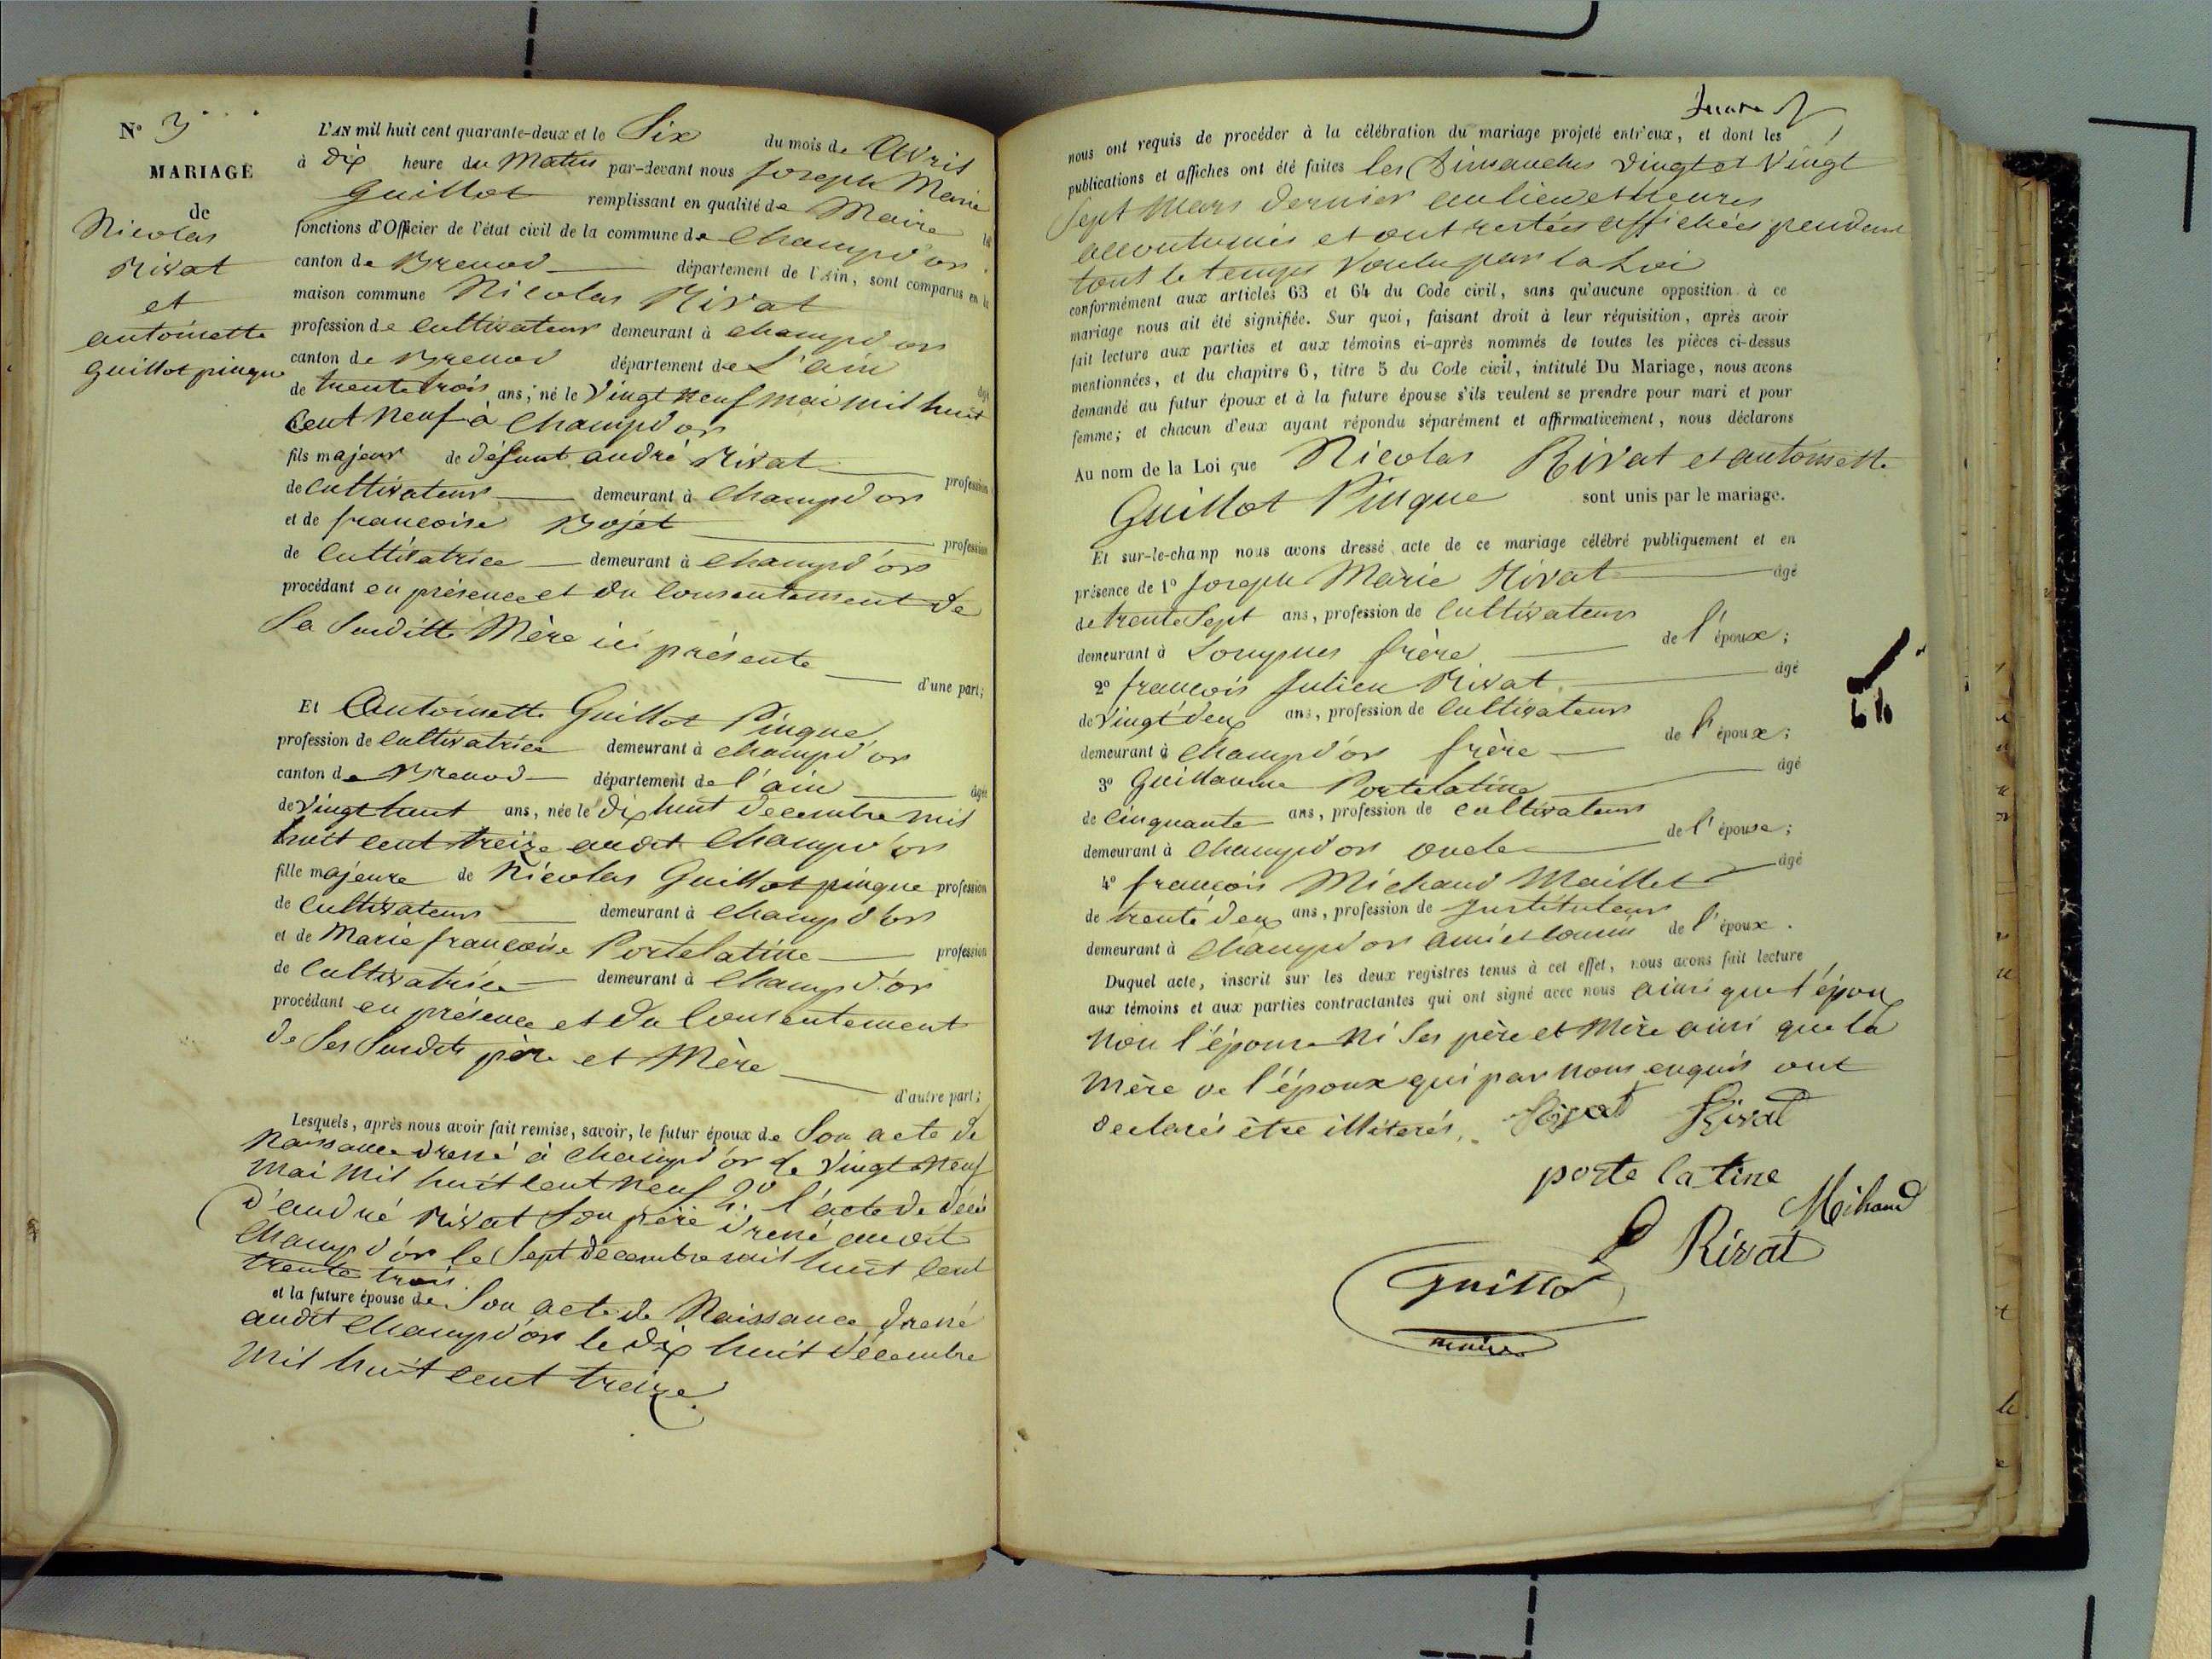 N° 3
MARIAGE
de
Nicolas
Rivat
et
antoinette
Guillot pingue
L'AN mil huit cent quarante-deux et le Six du mois de Avril
à dix heure du Matin par-devant nous Joseph Marie
Guillot remplissant en qualité de Maire les
fonctions d'Officier de l'état civil de la commune de Champd'or
canton de Brenod département de l'Ain, sont comparus en la
maison commune Nicolas Rivat
profession de Cultivateur demeurant à champd'or
canton de Brenod département de L'ain âgé
de trente trois ans, né le Vingt Neuf mai mil huit
Cent Neuf à Champd'or
fils majeur de défunt andré Rivat profession
de Cultivateur demeurant à Champd'or
et de francoise Bojet profession
de Cultivatrice demeurant à Champd'or
procédant en présence et du Consentement de
Sa Susditte Mère ici présente
d'une part;
Et Antoinette Guillot Pingue
profession de Cultivatrice demeurant à Champd'or
canton de Brenod département de l'ain âgée
de Vingt huit ans, née le dix huit decembre mil
huit cent treize audit Champd'or
fille majeure de Nicolas Guillot pingue profession
de Cultivateur demeurant à Champd'or
et de Marie francoise Portelatine profession
de Cultivatrice demeurant à Champd'or
procédant en présence et du Consentement
de Ses Susdits père et Mère
d'autre part;
Lesquels, après nous avoir fait remise, savoir, le futur époux de Son acte de
Naissance dressé à Champd'or le Vingt Neuf
Mai Mil huit Cent Neuf 2° l'acte de décè
d'andré Rivat Son père dressé audit
Champd'or le Sept decembre mil huit Cent
trente trois
et la future épouse de Son acte de Naissance dressé
audit Champd'or le dix huit décembre
Mil huit cent treize
nous ont requis de procéder à la célébration du mariage projeté entr'eux, et dont les
publications et affiches ont été faites les Dimanches vingt et Vingt
Sept Mars dernier au lieu et heures
accoutumés et ont restées affichées pendant
tout le temps Voulu par la Loi
conformément aux articles 63 et 64 du Code civil, sans qu'aucune opposition à ce
mariage nous ait été signifiée. Sur quoi, faisant droit à leur réquisition, après avoir
fait lecture aux parties et aux témoins ci-après nommés de toutes les pièces ci-dessus
mentionnées, et du chapitre 6, titre 5 du Code civil, intitulé Du Mariage, nous avons
demandé au futur époux et à la future épouse s'ils veulent se prendre pour mari et pour
femme; et chacun d'eux ayant répondu séparément et affirmativement, nous déclarons
Au nom de la Loi que Nicolas Rivat et antoinette
Guillot Pingue sont unis par le mariage.
Et sur-le-champ nous avons dressé acte de ce mariage célébré publiquement et en
présence de 1° Joseph Marie Rivat âgé
de trente Sept ans, profession de Cultivateur
demeurant à Lompnes frère de l'époux;
2° francois Julien Rivat âgé
de Vingt deux ans, profession de Cultivateur
demeurant à Champd'or frère de l'époux;
3° Guillaume Portelatine âgé
de Cinquante ans, profession de Cultivateur
demeurant à Champd'or oncle de l'épouse;
4° francois Michaud Maillet âgé
de trente deux ans, profession de Instituteur
demeurant à Champd'or ami et cousin de l'époux.
Duquel acte, inscrit sur les deux registres tenus à cet effet, nous avons fait lecture
aux témoins et aux parties contractantes qui ont signé avec nous ainsi que l'époux
Non l'épouse Ni Ses père et Mère ainsi que la
Mère de l'époux qui par Nous enquis ont
declarés être illiterés.
Rivat Rivat
porte latine
Mihaud
Rivat
Guillot
maire